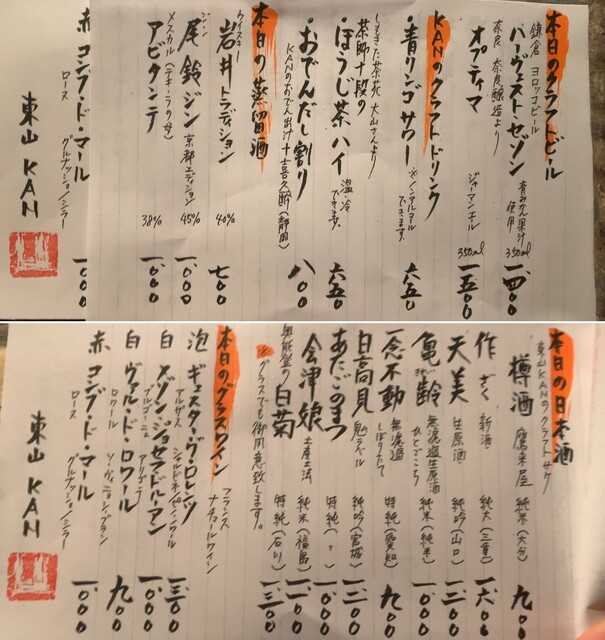 本日のクラフトビール
鎌倉 ヨロッコビール
ハーヴェスト・セゾン 青みかん果汁使用 350ml 一、四〇〇
奈良 奈良醸造より
オプティマ ジャーマンピルス 350ml 一、五〇〇
KANのクラフトドリンク
・青リンゴサワー ※ノンアルコールできます。 六五〇
しもきた茶苑 大山さんより
茶師十段の
・ほうじ茶ハイ 温・冷できます。 六五〇
・おでんだし割り 八〇〇
KANのおでん出汁+喜久酔(静岡)
本日の蒸留酒
ウイスキー
岩井トラディション 40% 七〇〇
ジン
尾鈴ジン 京都エディション 45% 一、〇〇〇
メスカル(テキーラの母)
アビタンテ 38% 一、〇〇〇
赤 コンブ・ド・マール 一、〇〇〇
ロース グルナッシュ/シラー
東山 KAN
本日の日本酒
東山KANのクラフトサケ
樽酒 鷹来屋 純米(大分) 九〇〇
作 ざく 新酒 純大(三重) 一、六〇〇
天美 生原酒 純吟(山口) 一、二〇〇
亀齢 無濾過生原酒 ひとごこち 純米 一、〇〇〇
一念不動 無濾過 しぼりたて 特純(愛知) 九〇〇
日高見 純吟(宮城) 一、二〇〇
あたごのまつ 特純(〃) 一、〇〇〇
会津娘 土産土法 純米(福島) 一、〇〇〇
奥能登の白菊 特純(石川) 一、三〇〇
※グラスでも御用意致します。
本日のグラスワイン フランス ナチュールワイン
泡 ギュスタ・ヴ・ロレンツ 一、三〇〇
アルザス
白 メゾン・ジョセフ・ドルーアン 一、〇〇〇
ブルゴーニュ アリゴテ
白 ヴァル・ド・ロワール 九〇〇
ロワール ソーヴィニヨン・ブラン
赤 コンブ・ド・マール 一、〇〇〇
ロース グルナッシュ/シラー
東山 KAN